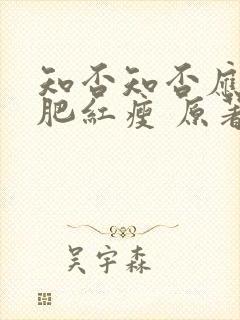 知否知否應
肥紅瘦 原著
吴宇森